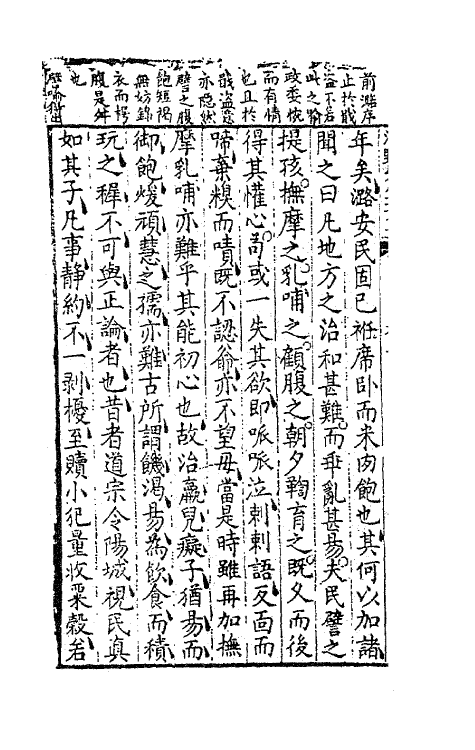 前潞序
止於戢
盜不若
此之喻
政委悗
而有情
也且於
戢盜意
亦隐然
譬之腹
飽短褐
無妨錦
衣而楞
腹是舛
也
年矣潞安民固已袵席卧而米肉飽也其何以加諸
聞之曰凡地方之治和甚難而乖亂甚易夫民譬之
提孩撫摩之乳哺之顧腹之朝夕鞠育之既久而後
得其懽心苟或一失其欲即呱呱泣剌剌語反面而
啼棄糗而嘖既不認翁亦不望母當是時雖再加撫
摩乳哺亦難乎其能初心也故治羸兒癡子猶易而
御飽煖頑慧之孺亦難古所謂饑渴易為飲食而積
玩之稺不可與正論者也昔者道宗令陽城視民真
如其子凡事静約不一剥擾至贖小犯量收粟穀若